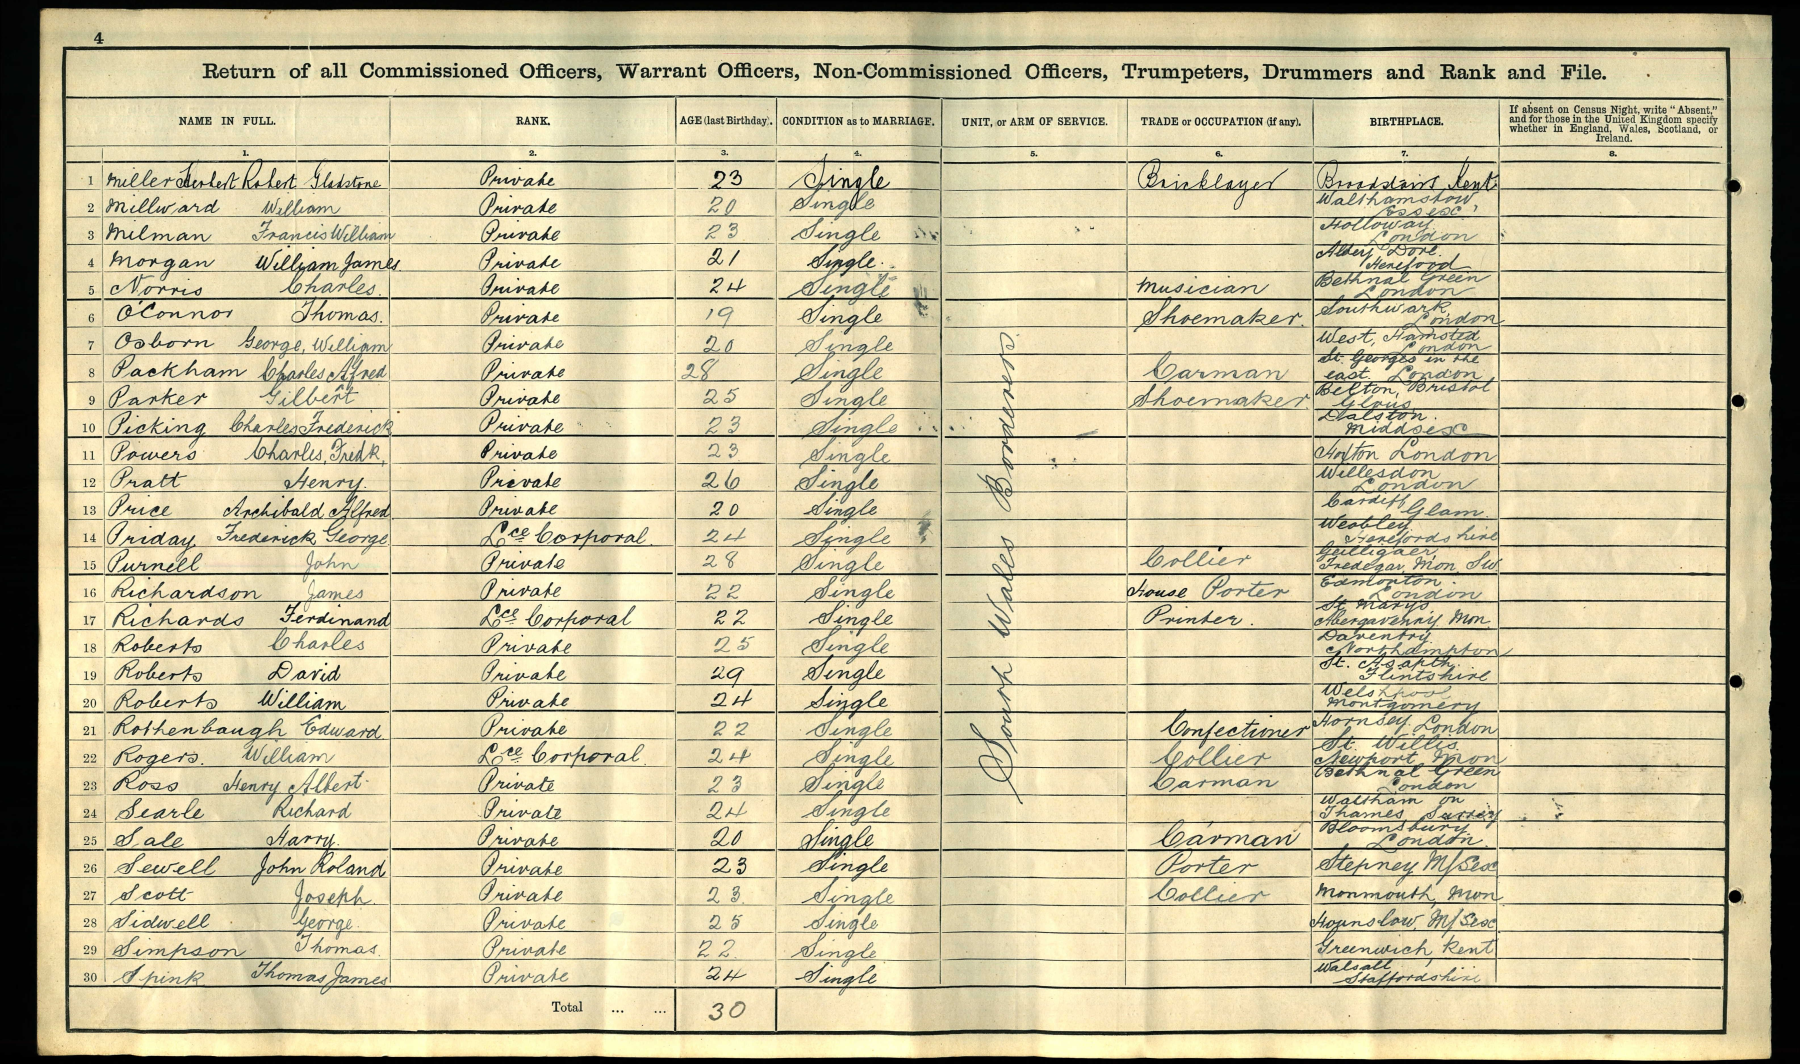 4
Return of all Commissioned Officers, Warrant Officers, Non-Commissioned Officers, Trumpeters, Drummers and Rank and File.
NAME IN FULL. RANK. AGE (last Birthday). CONDITION as to MARRIAGE. UNIT, or ARM OF SERVICE. TRADE or OCCUPATION (if any). BIRTHPLACE. If absent on Census Night, write "Absent," and for those in the United Kingdom specify whether in England, Wales, Scotland, or Ireland.
1. 2. 3. 4. 5. 6. 7. 8.
1 Miller Herbert Robert Gladstone Private 23 Single Bricklayer Broadstairs Kent
2 Millward William Private 20 Single Walthamstow Essex
3 Milman Francis William Private 23 Single Holloway London
4 Morgan William James Private 21 Single Abbey Dore. Hereford
5 Norris Charles. Private 24 Single Musician Bethnal Green London
6 O'Connor Thomas. Private 19 Single Shoemaker. Southwark London
7 Osborn George, William Private 20 Single West, Hamsted London
8 Packham Charles Alfred Private 28 Single Carman St. Georges in the east. London
9 Parker Gilbert Private 25 Single Shoemaker Bristol Glous
10 Picking Charles Frederick Private 23 Single Dalston. Middsex
11 Powers Charles, Fredk, Private 23 Single Hoxton London
12 Pratt Henry. Private 26 Single Willesdon London
13 Price Archibald Alfred Private 20 Single Cardiff Glam.
14 Priday Frederick George Lce Corporal. 24 Single Weobley Herefordshire
15 Purnell John Private 28 Single Collier Gelligaer Tredegar, Mon, SW
16 Richardson James Private 22 Single House Porter Edmonton. London
17 Richards Ferdinand Lce Corporal 22 Single Printer. St Marys Abergavenny Mon.
18 Roberts Charles Private 25 Single Daventry Northampton
19 Roberts David Private 29 Single St. Asaph. Flintshire
20 Roberts William Private 24 Single Welshpool Montgomery
21 Rothenbaugh Edward Private 22 Single Confectioner Hornsey. London
22 Rogers. William Lce Corporal. 24 Single Collier St. Willis Newport Mon
23 Ross Henry Albert Private 23 Single Carman Bethnal Green London
24 Searle Richard Private 24 Single Waltham on Thames Surrey
25 Sale Harry. Private 20 Single Carman Bloomsbury London.
26 Sewell John Roland Private 23 Single Porter Stepney M/Sex
27 Scott Joseph. Private 23 Single Collier Monmouth, Mon
28 Sidwell George. Private 25 Single Hounslow, M/Sex
29 Simpson Thomas. Private 22 Single Greenwich, Kent
30 Spink Thomas James Private 24 Single Walsall Staffordshire
South Wales Borderers
Total ... ... 30